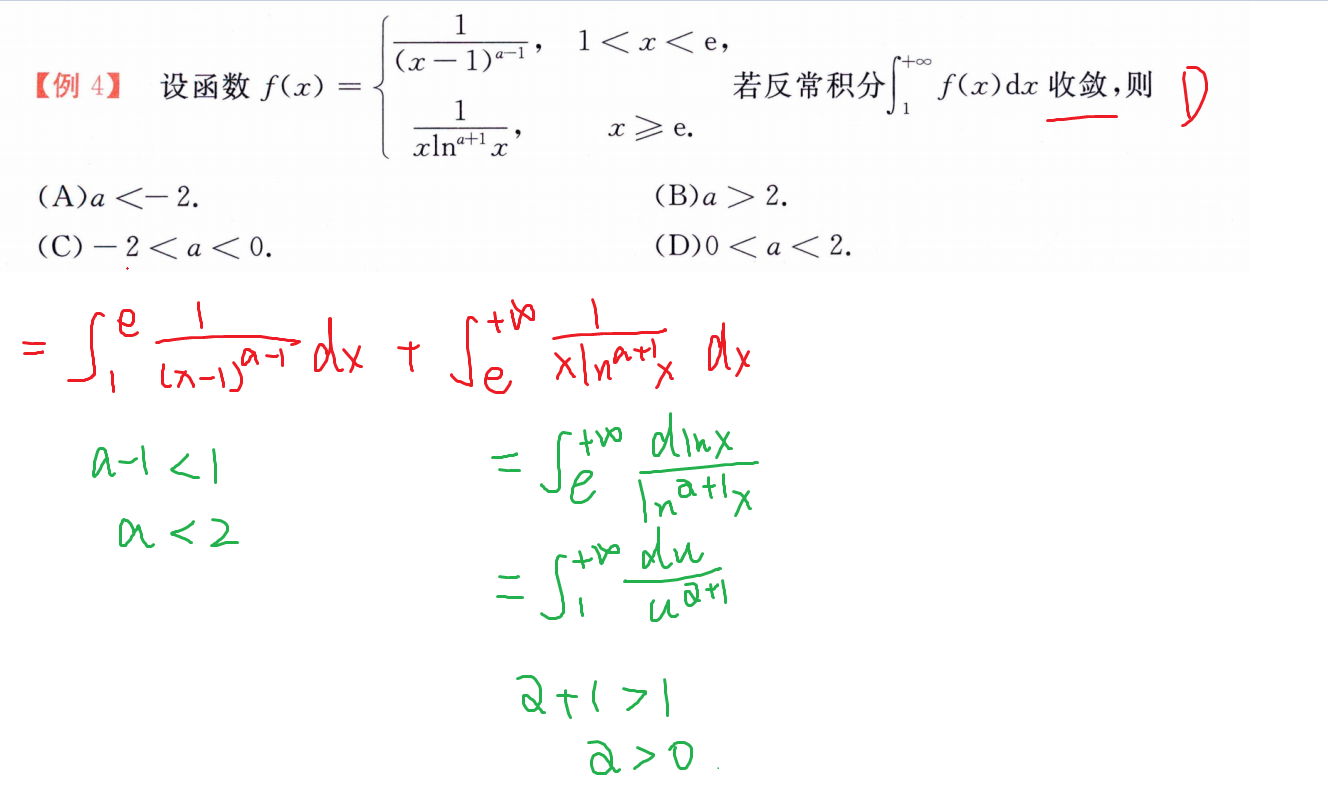 【例 4】 设函数 f(x) = { 1/(x－1)^{a－1}, 1＜x＜e, 1/(xln^{a+1}x), x⩾e. 若反常积分∫_1^{+∞} f(x)dx 收敛,则 D
(A)a＜－2. (B)a＞2.
(C)－2＜a＜0. (D)0＜a＜2.
= ∫_1^e 1/(x-1)^{a-1} dx + ∫_e^{+∞} 1/(xln^{a+1}x) dx
a-1<1 = ∫_e^{+∞} dlnx/ln^{a+1}x
a<2 = ∫_1^{+∞} du/u^{a+1}
a+1>1
a>0.